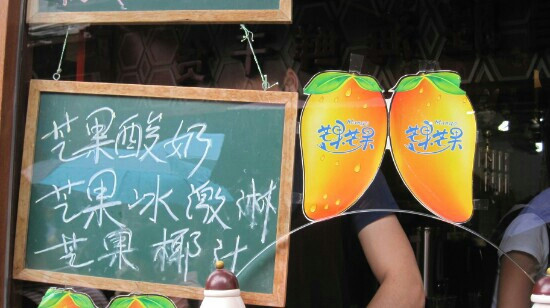 芒果酸奶
芒果冰激淋
芒果椰汁
Mango
芒果芒果
Mango
芒果芒果